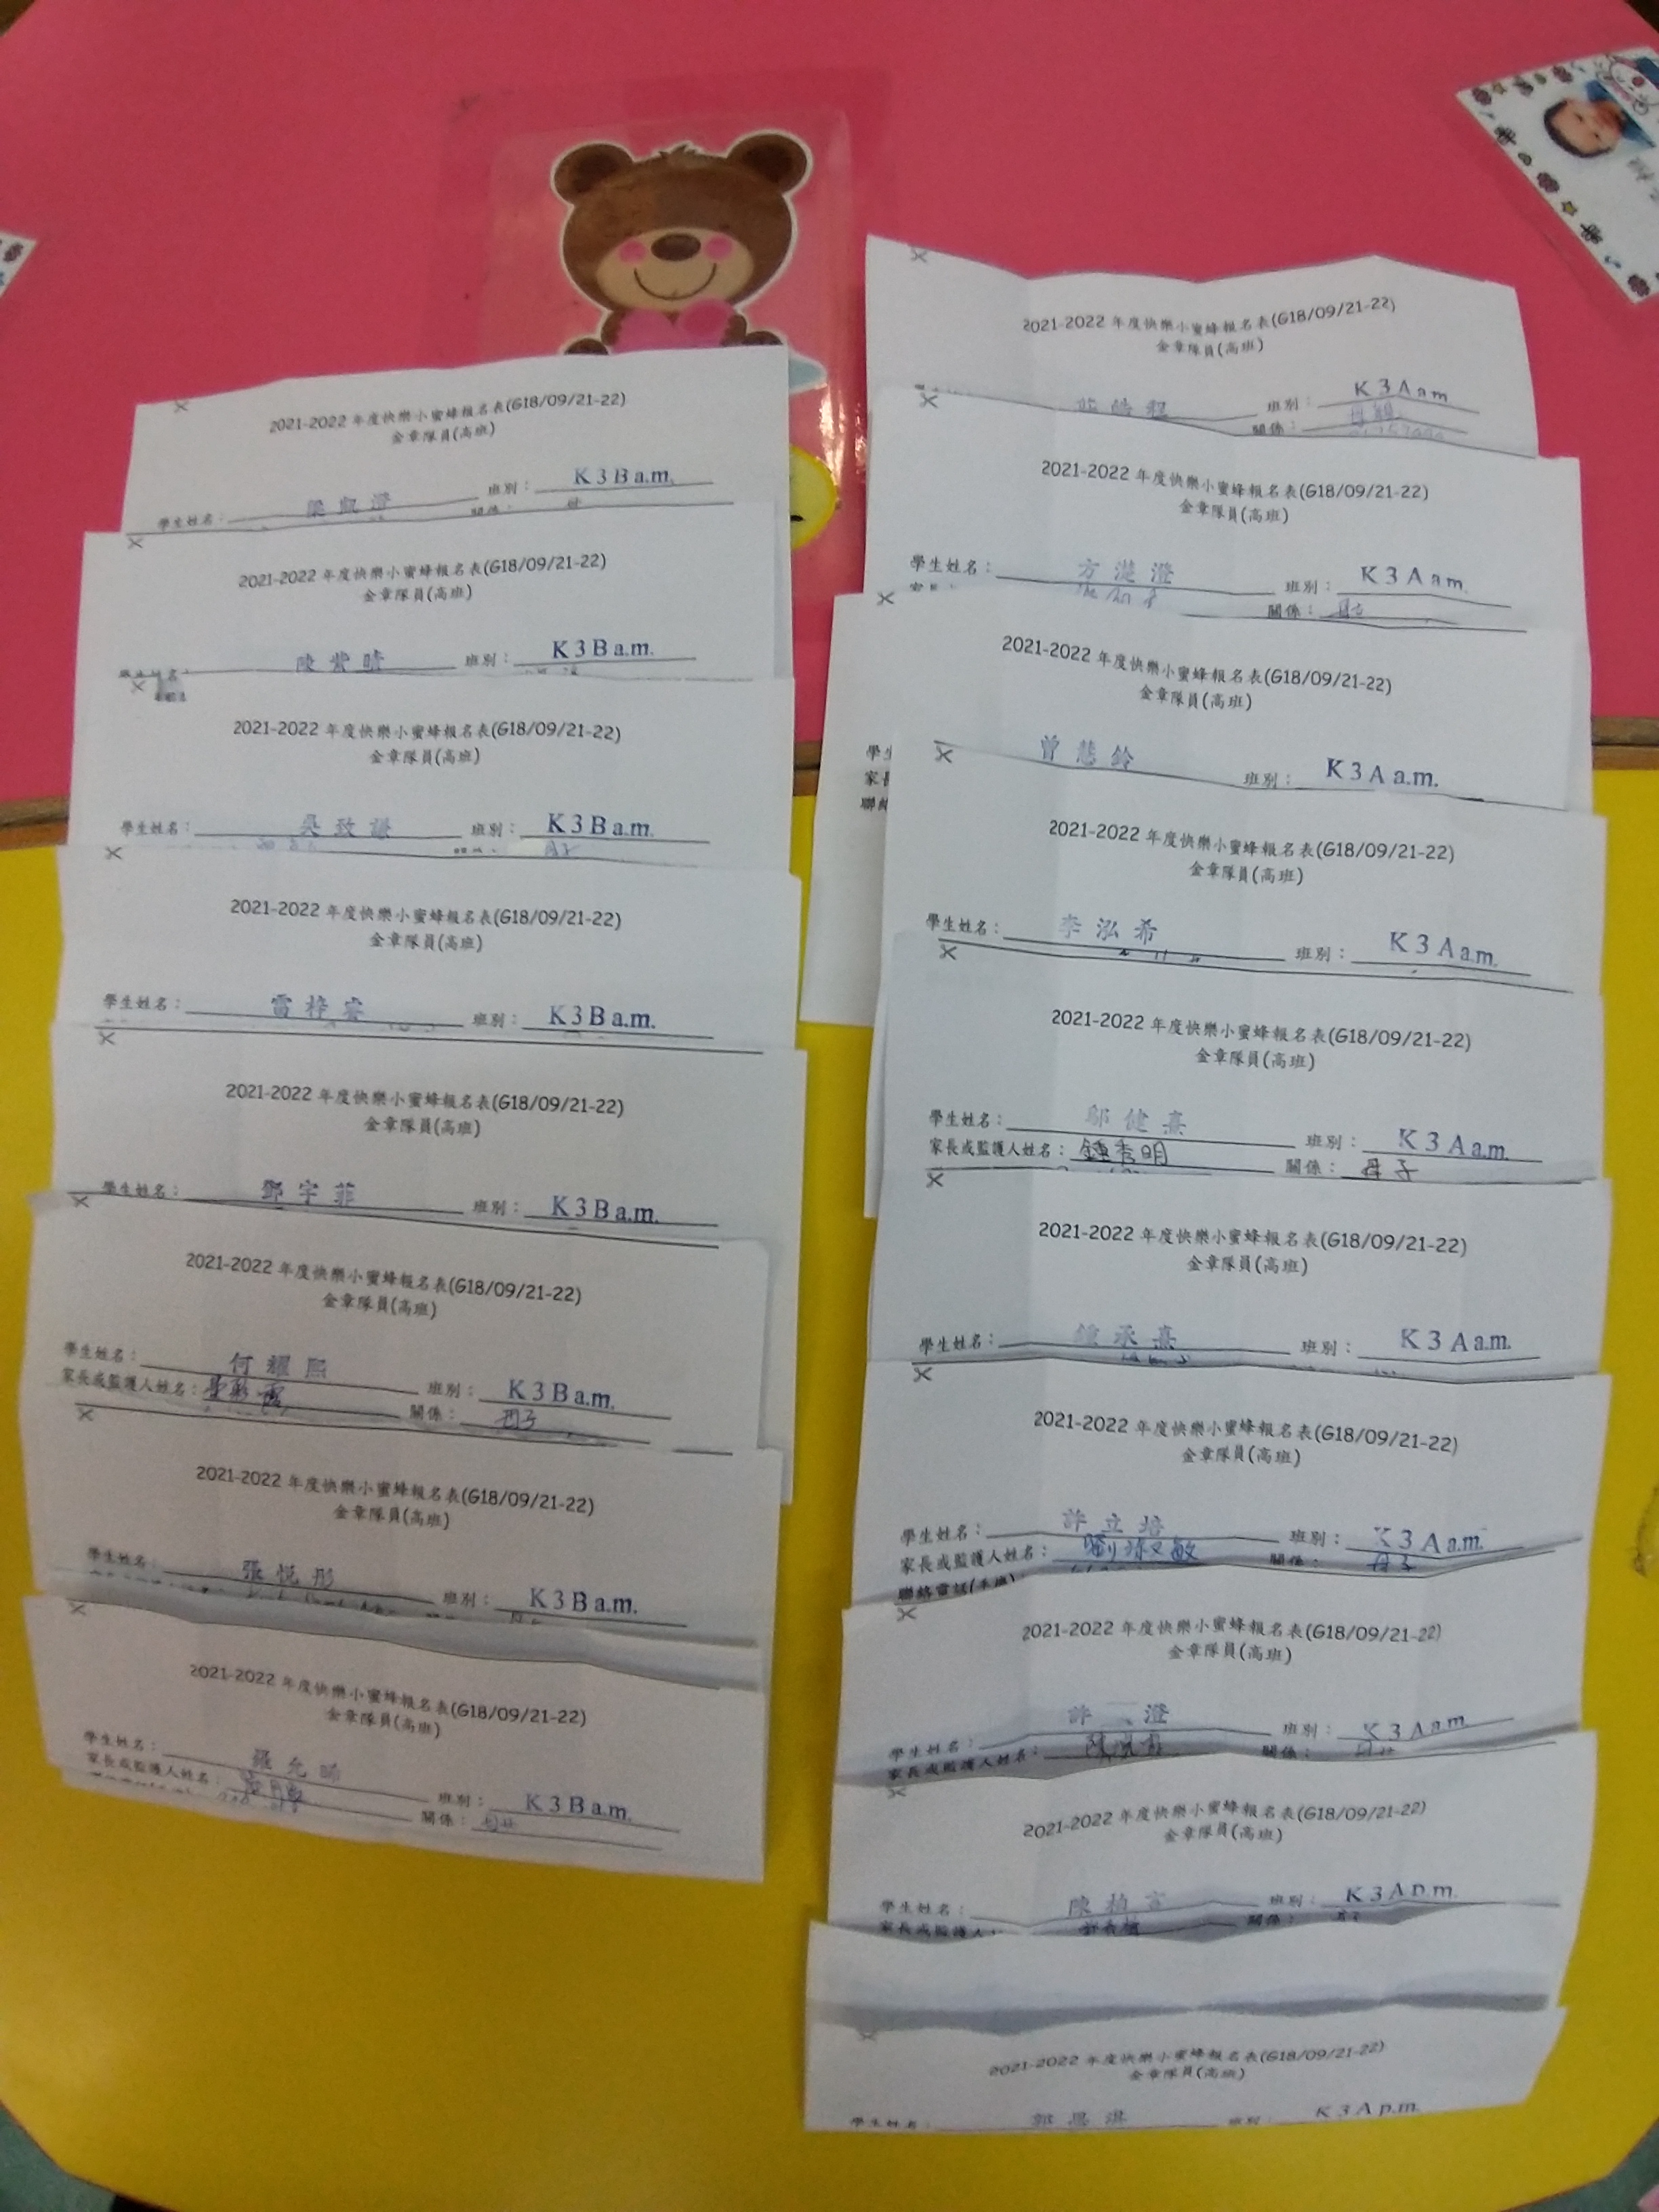 2021-2022 年度快樂小蜜蜂報名表(G18/09/21-22)
金章隊員(高班)
學生姓名： 班別： K 3 B a.m.
關係：
2021-2022 年度快樂小蜜蜂報名表(G18/09/21-22)
金章隊員(高班)
學生姓名： 班別： K 3 B a.m.
2021-2022 年度快樂小蜜蜂報名表(G18/09/21-22)
金章隊員(高班)
學生姓名： 吳致謙 班別： K 3 B a.m.
2021-2022 年度快樂小蜜蜂報名表(G18/09/21-22)
金章隊員(高班)
學生姓名： 雷梓 班別： K 3 B a.m.
2021-2022 年度快樂小蜜蜂報名表(G18/09/21-22)
金章隊員(高班)
學生姓名： 鄧宇菲 班別： K 3 B a.m.
2021-2022 年度快樂小蜜蜂報名表(G18/09/21-22)
金章隊員(高班)
學生姓名： 何耀熙 班別： K 3 B a.m.
家長或監護人姓名： 關係： 母子
2021-2022 年度快樂小蜜蜂報名表(G18/09/21-22)
金章隊員(高班)
學生姓名： 張悅彤 班別： K 3 B a.m.
2021-2022 年度快樂小蜜蜂報名表(G18/09/21-22)
金章隊員(高班)
學生姓名： 羅允晞 班別： K 3 B a.m.
家長或監護人姓名： 關係：
2021-2022 年度快樂小蜜蜂報名表(G18/09/21-22)
金章隊員(高班)
班別： K 3 A a m
關係： 母親
2021-2022 年度快樂小蜜蜂報名表(G18/09/21-22)
金章隊員(高班)
學生姓名： 方澄 班別： K 3 A a m.
關係：
2021-2022 年度快樂小蜜蜂報名表(G18/09/21-22)
金章隊員(高班)
曾慧鈴 班別： K 3 A a.m.
2021-2022 年度快樂小蜜蜂報名表(G18/09/21-22)
金章隊員(高班)
學生姓名： 李泓希 班別： K 3 A a.m.
2021-2022 年度快樂小蜜蜂報名表(G18/09/21-22)
金章隊員(高班)
學生姓名： 鄔健熹 班別： K 3 A a.m.
家長或監護人姓名： 鍾秀明 關係： 母子
2021-2022 年度快樂小蜜蜂報名表(G18/09/21-22)
金章隊員(高班)
學生姓名： 承熹 班別： K 3 A a.m.
2021-2022 年度快樂小蜜蜂報名表(G18/09/21-22)
金章隊員(高班)
學生姓名： 許立培 班別： K 3 A a.m.
家長或監護人姓名： 劉淑敏 關係： 母子
聯絡電話(手提)：
2021-2022 年度快樂小蜜蜂報名表(G18/09/21-22)
金章隊員(高班)
學生姓名： 許 澄 班別： K 3 A a.m.
家長或監護人姓名： 關係：
2021-2022 年度快樂小蜜蜂報名表(G18/09/21-22)
金章隊員(高班)
學生姓名： 陳柏言 班別： K 3 A p.m.
家長或監護人 關係：
2021-2022 年度快樂小蜜蜂報名表(G18/09/21-22)
金章隊員(高班)
學生姓名： 班別： K 3 A p.m.